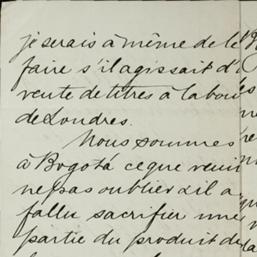 je serais à même de le
faire s'il agissait d'
vente de titres à la bou
de Londres.
Nous sommes
à Bogotá ce que
ne pas oublier & il a
fallu sacrifier une
partie du produit de